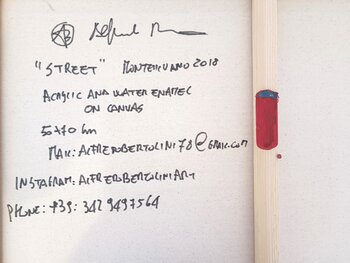 "STREET" MONTECCHIO 2018
ACRYLIC AND WATER ENAMEL
ON CANVAS
50x70 cm
MAIL: ALFREDOBERTOLINI78@GMAIL.COM
INSTAGRAM: ALFREDOBERTOLINIART
PHONE: +39: 342 9497564